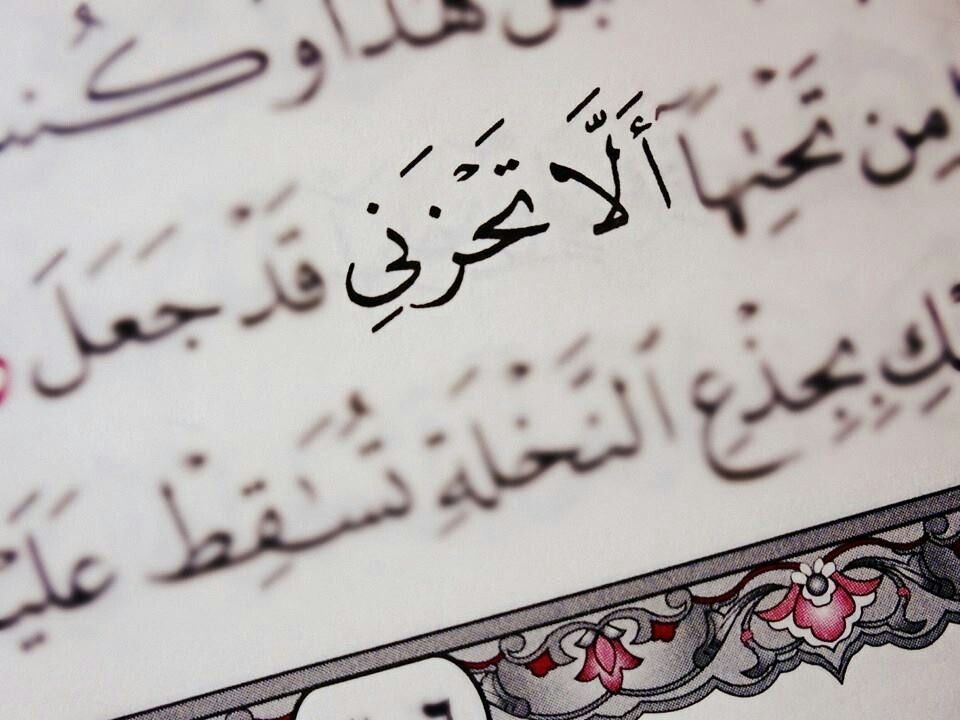 هَٰذَا وَكُن
مِن تَحْتِهَآ أَلَّا تَحْزَنِي قَدْ جَعَلَ
بِجِذْعِ ٱلنَّخْلَةِ تُسَٰقِطْ عَلَيْ